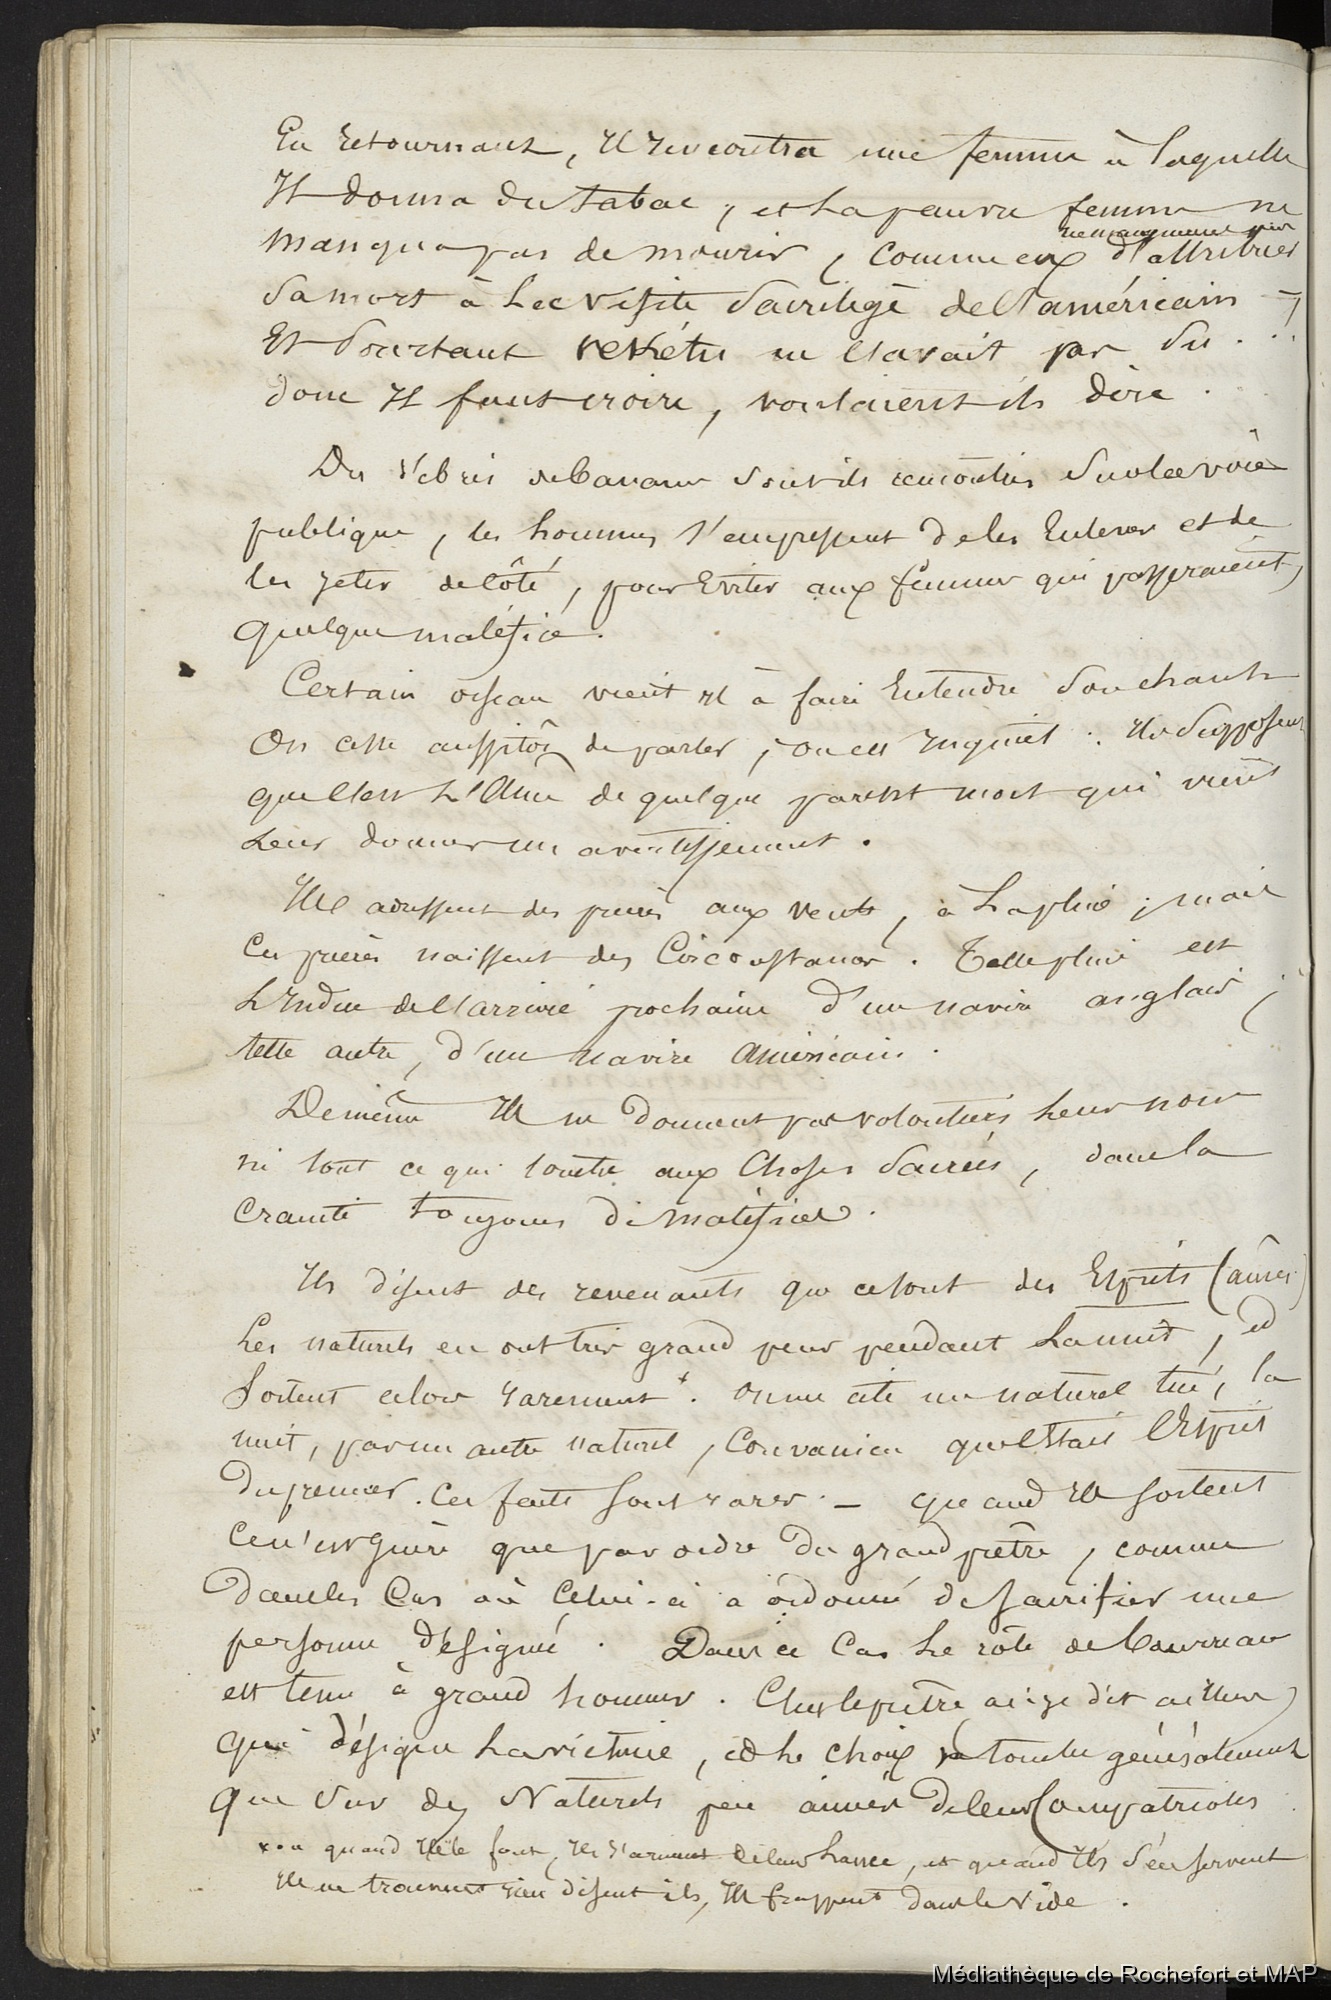 En retournant, il rencontra une femme à laquelle
Il donna du tabac ; et la pauvre femme ne
ne manquèrent pas
manqua pas de mourir, comme eux d'attribuer
sa mort à la visite sacrilège de l'américain
Et pourtant Vekétu ne l'avait pas su . . .
donc il faut croire, voulaient ils dire .
Des débris de bananes sont-ils rencontrés sur la voie
publique, les hommes s'empressent de les enlever et de
les jeter de côté, pour éviter aux femmes qui passeraient,
quelque maléfice.
Certain oiseau vient il à faire entendre son chant
On cesse aussitôt de parler, on est inquiet . Ils supposent
que c'est l'âme de quelque parent mort qui vient
leur donner un avertissement .
Ils adressent des prières aux vents, à la pluie ; mais
ces prières naissent des circonstances . Telle pluie est
l'indice de l'arrivée prochaine d'un navire anglais ;
telle autre, d'un navire américain .
De même ils ne donnent pas volontiers leur nom
ni tout ce qui touche aux choses sacrées, dans la
crainte toujours de maléfices .
Ils disent des revenants que ce sont des Esprits (âmes)
Les naturels en ont très grand peur pendant la nuit, et
sortent alors rarement + . On me cite un naturel tué, la
nuit, par un autre naturel, convaincu que c'était l'Esprit
du premier . Ces faits sont rares . — quand ils sortent
ce n'est guère que par ordre du grand prêtre, comme
dans les cas où celui-ci a ordonné de sacrifier une
personne désignée . Dans ce cas le rôle de bourreau
est tenu à grand honneur . C'est le prêtre ai-je dit ailleurs
qui désigne la victime, et le choix ne tombe généralement
que sur des Naturels peu aimés de leurs compatriotes
x ou quand ils le font, ils s'arment de leur lance, et quand ils s'en servent
ils ne trouvent rien disent ils, ils frappent dans le vide .
Médiathèque de Rochefort et MAP